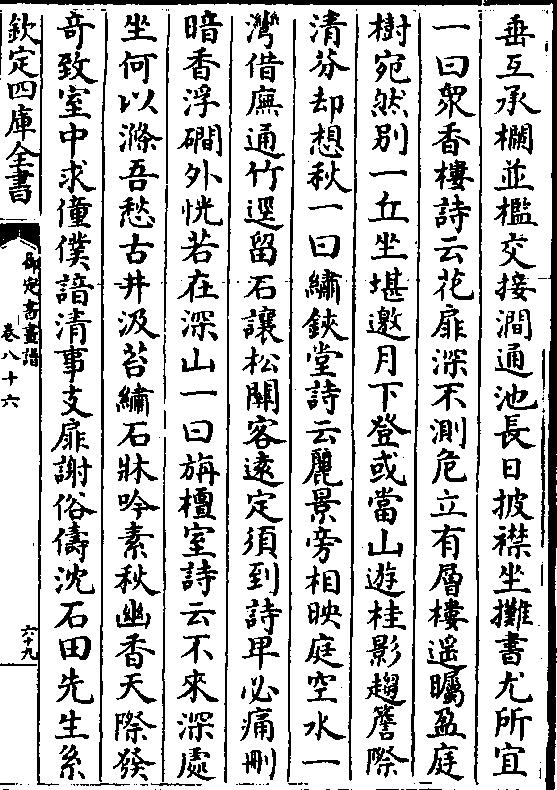 垂互承櫩並檻交接澗通池長日披襟坐攤書尤所宜
一曰衆香樓詩云花扉深不測危立有層樓遥矚盈庭
樹宛然别一丘坐堪邀月下登或當山遊桂影趨簷際
清芬却想秋一曰繡鋏堂詩云麗景旁相映庭空水一
灣借廡通竹逕留石讓松關客遠定須到詩早必痛刪
暗香浮磵外恍若在深山一曰旃檀室詩云不來深處
坐何以滌吾愁古井汲苔繡石牀吟素秋幽香天際發
竒致室中求僮僕諳清事支扉謝俗儔沈石田先生系
欽定四庫全書
御定書畫譜
卷八十六
六十九